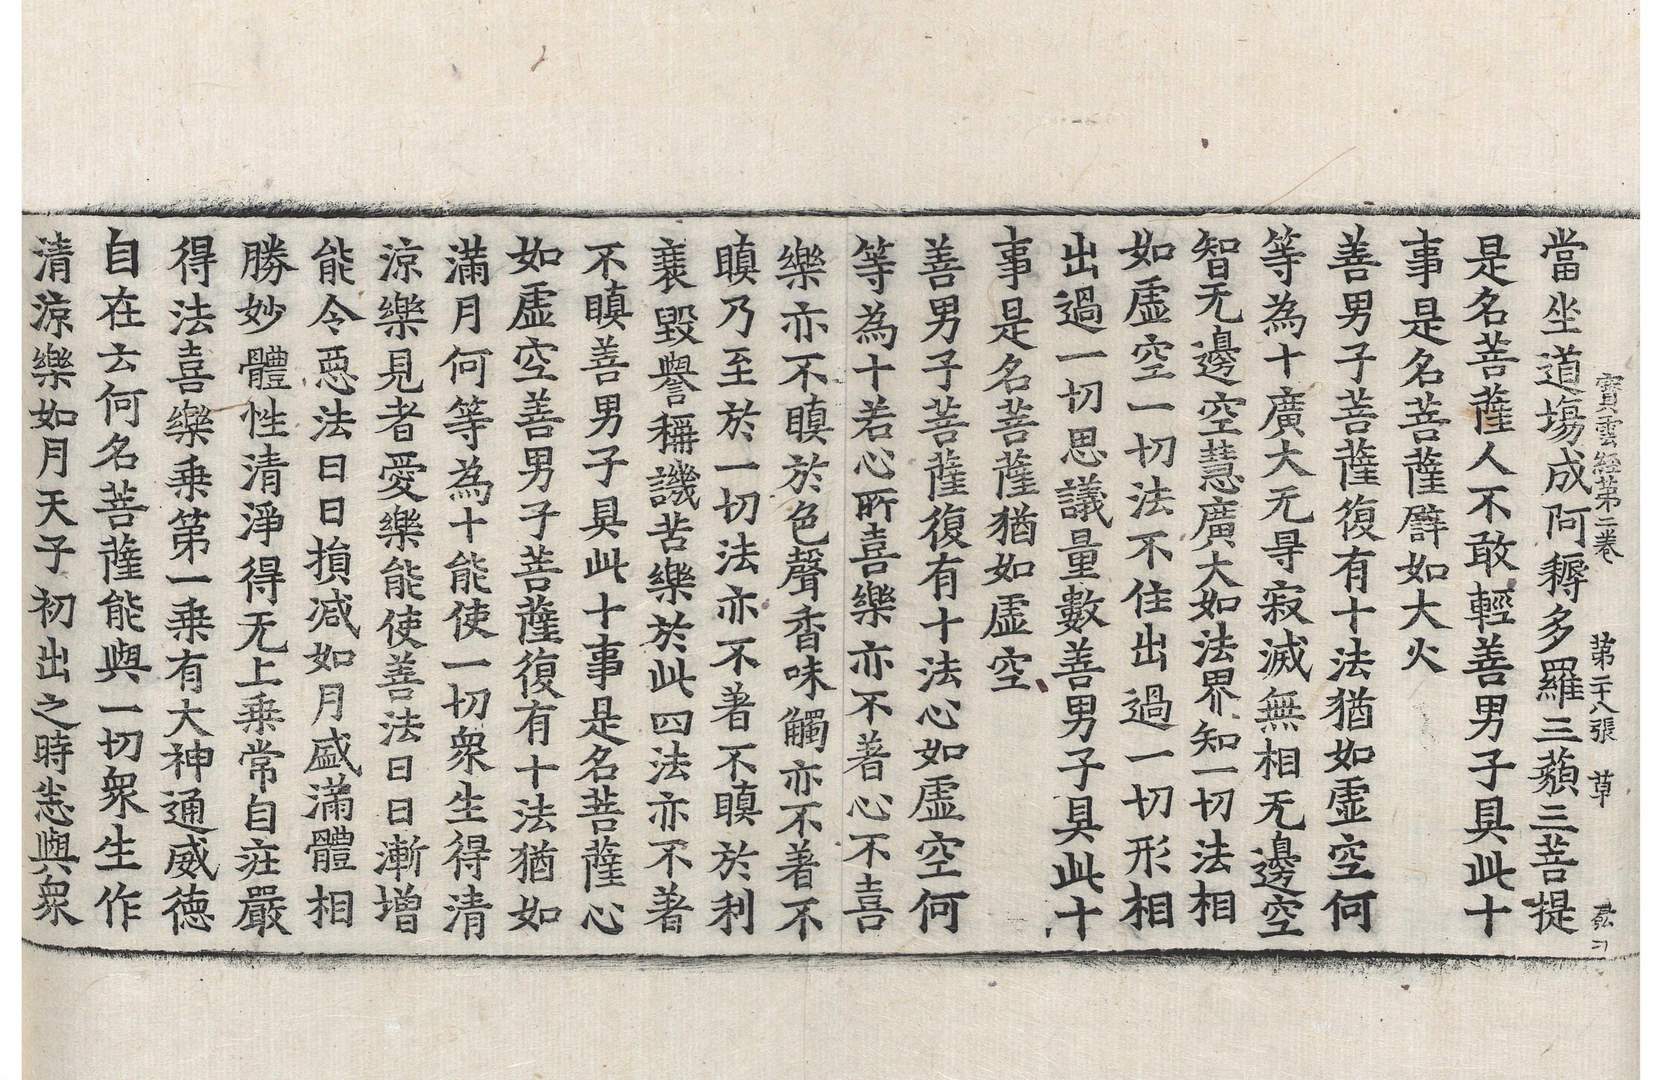 當坐道場成阿耨多羅三藐三菩提
寶雲經第二卷　第二十八張　草
是名菩薩人不敢輕善男子具此十
事是名菩薩譬如大火
善男子菩薩復有十法猶如虛空何
等為十廣大无㝵寂滅無相无邊空
智无邊空慧廣大如法界知一切法相
如虛空一切法不住出過一切形相
出過一切思議量數善男子具此十
事是名菩薩猶如虛空
善男子菩薩復有十法心如虛空何
等為十若心所喜樂亦不著心不喜
樂亦不瞋於色聲香味觸亦不著不
瞋乃至於一切法亦不著不瞋於利
衰毀譽稱譏苦樂於此四法亦不著
不瞋善男子具此十事是名菩薩心
如虛空善男子菩薩復有十法猶如
滿月何等為十能使一切衆生得清
涼樂見者愛樂能使善法日日漸增
能令惡法日日損減如月盛滿體相
勝妙體性清淨得无上乘常自莊嚴
得法喜樂乘第一乘有大神通威德
自在云何名菩薩能與一切衆生作
清涼樂如月天子初出之時悉與衆